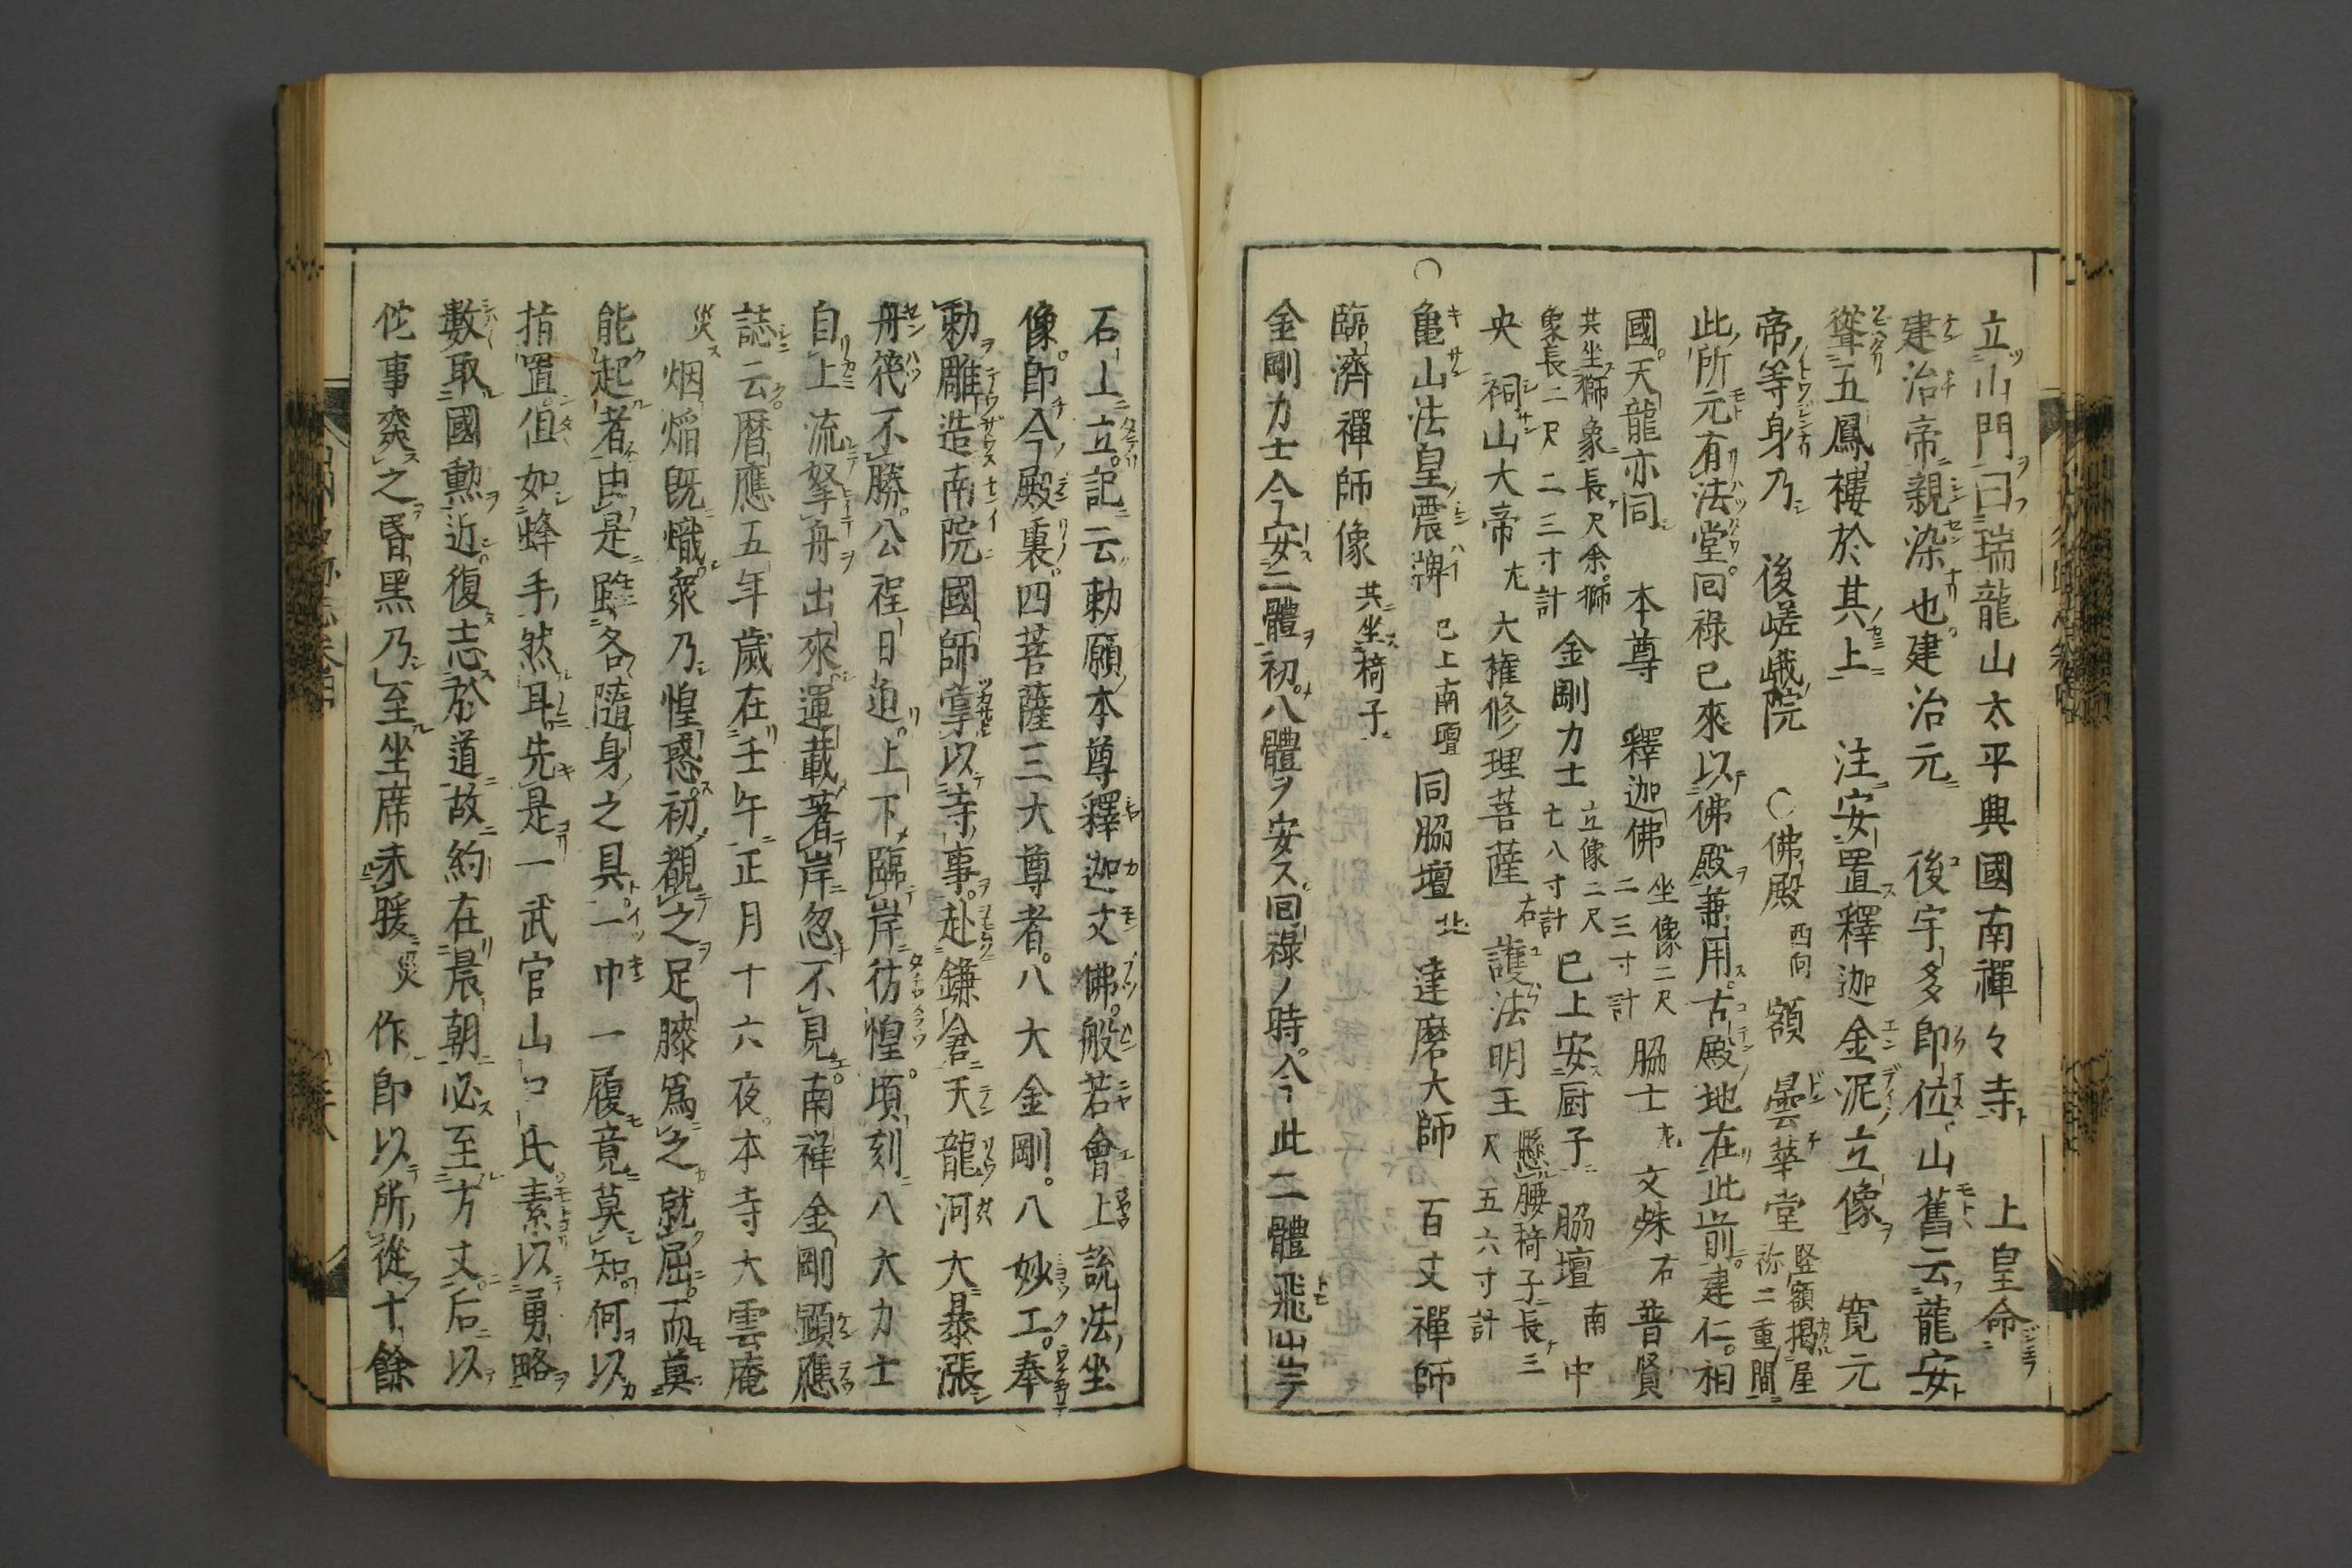 立山門曰瑞龍山太平興國南禪々寺 上皇命
建治帝親染也建治元 後宇多即位山舊云龍安
聳五鳳樓於其上 注安置釋迦金泥立像 寛元
帝等身乃 後嵯峨院 〇佛殿 西向 額 曇華堂 竪額揭屋祢二重間
此所元有法堂回祿已來以佛殿兼用古殿地在此前建仁相
國天龍亦同 本尊 釋迦佛 坐像二尺二三寸計 脇士 左 文殊 右 普賢
共坐獅象長尺余獅象長二尺二三寸計 金剛力士 立像二尺七八寸計 已上安厨子 脇壇 南 中
央 祠山大帝 左 大権修理菩薩 右 護法明王 懸腰椅子長三尺五六寸計
〇亀山法皇震牌 已上南壇 同脇壇 北 達磨大師 百丈禪師
臨濟禪師像 共坐椅子
金剛力士今安二體初八體ヲ安ス回祿ノ時今此二體飛出テ
石上立記云勅願本尊釋迦文佛般若會上說法坐
像即今殿裏四菩薩三大尊者八大金剛八妙工奉
勅雕造南院國師掌以寺事赴鎌倉天龍河大暴漲
舟筏不勝公程日迫上下臨岸彷惶頃刻八大力士
自上流拏舟出來運載著岸忽不見南禅金剛顕應
誌云暦應五年歲在壬午正月十六夜本寺大雲庵
災烟熖既熾衆乃惶惑初覩之足膝爲之就屈而莫
能起者由是雖各隨身之具一巾一履竟莫知何以
指置但如蜂手然耳先是一武官山口氏素以勇略
數取國勲近復志於道故約在晨朝必至方丈后以
佗事爽之昏黑乃至坐席未暖災作即以所從十餘